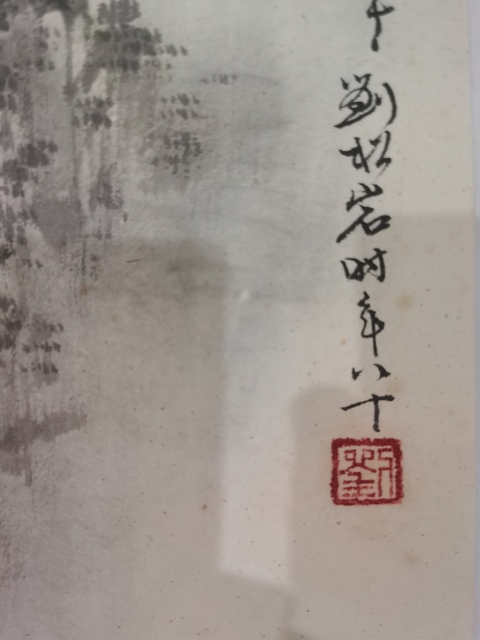 劉松岩时年八十
劉